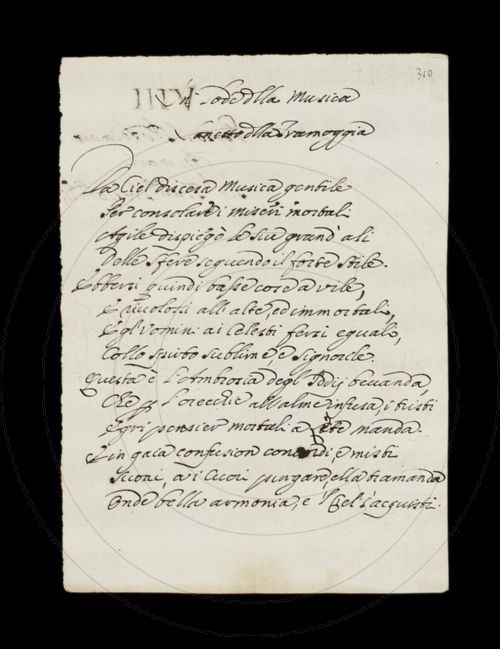 310
In Lode della Musica
Sonetto della Tramoggia
Da Ciel discesa Musica gentile
Per consolare i miseri mortali
Agile dispiegò le sue grand' ali
Delle sfere seguendo il forte stile.
Ebbersi quindi basse cose a vile,
E rivolosi all' alte, ed immortali,
E gl' uomini ai Celesti fersi eguali,
Collo spirito sublime, e signorile.
Questa è l'Ambrosia degl' Iddij bevanda,
Che p l'orecchie all' alme infusa, i tristi
Egri pensier mortali a manda.
E in gaia confusion concordi, e misti
Suoni, a i Cuori purgare, ella tramanda
Onde bella armonia, e 'l Ciel s'acquisti.